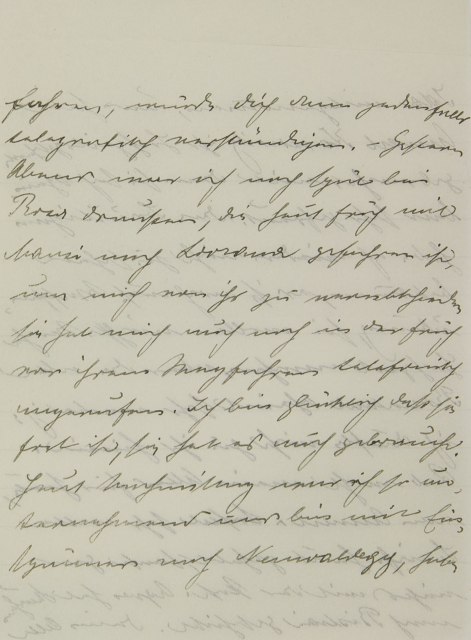 fahren, würde dich dann jedenfalls
telegrafisch verständigen. – Gestern
Abend war ich noch spät bei
Rosa draussen, die heut früh mit
Mausi nach gefahren ist,
um mich von ihr zu verabschieden
sie hat mich auch noch in der früh
vor ihrem Wegfahren telefonisch
angerufen. Ich bin glücklich dass sie
fort ist, sie hat es auch gebraucht.
Heut Nachmittag war ich so un-
ternehmend und bin mit Ein-
spänner nach Neuwaldegg, habe